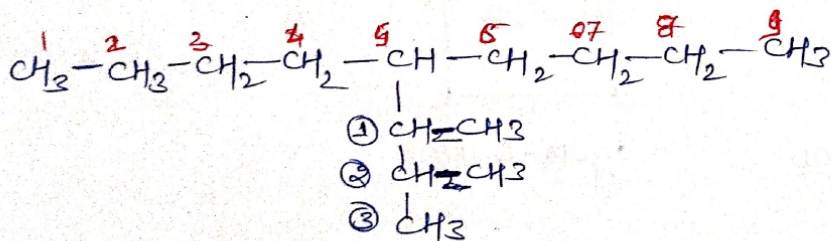 1 2 3 4 5 6 07 8 9
CH3-CH3-CH2-CH2-CH-CH2-CH2-CH2-CH3
① CH-CH3
② CH-CH3
③ CH3